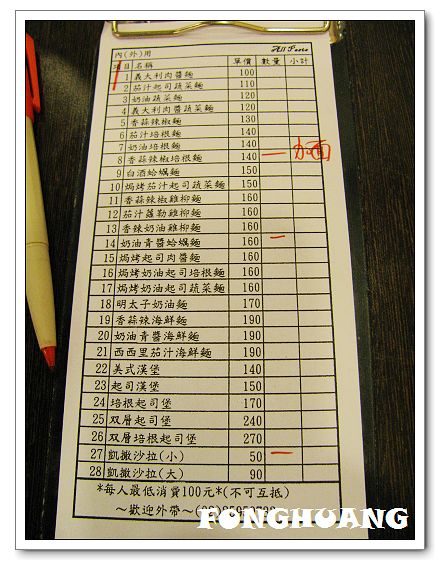 內(外)用 All Pasta
項目名稱 單價 數量 小計
1 義大利肉醬麵 100
2 茄汁起司蔬菜麵 110
3 奶油蔬菜麵 120
4 義大利肉醬蔬菜麵 120
5 香蒜辣椒麵 130
6 茄汁培根麵 140
7 奶油培根麵 140
8 香蒜辣椒培根麵 140 一 加麵
9 白酒蛤蠣麵 150
10 焗烤茄汁起司蔬菜麵 150
11 香蒜辣椒雞柳麵 160
12 茄汁蘿勒雞柳麵 160
13 香辣奶油雞柳麵 160
14 奶油青醬蛤蠣麵 160 一
15 焗烤起司肉醬麵 160
16 焗烤奶油起司培根麵 160
17 焗烤奶油起司蔬菜麵 160
18 明太子奶油麵 170
19 香蒜辣海鮮麵 190
20 奶油青醬海鮮麵 190
21 西西里茄汁海鮮麵 190
22 美式漢堡 140
23 起司漢堡 150
24 培根起司堡 170
25 双層起司堡 240
26 双層培根起司堡 270
27 凱撒沙拉(小) 50 一
28 凱撒沙拉(大) 90
*每人最低消費100元*(不可互抵)
～歡迎外帶～
FONGHUANG